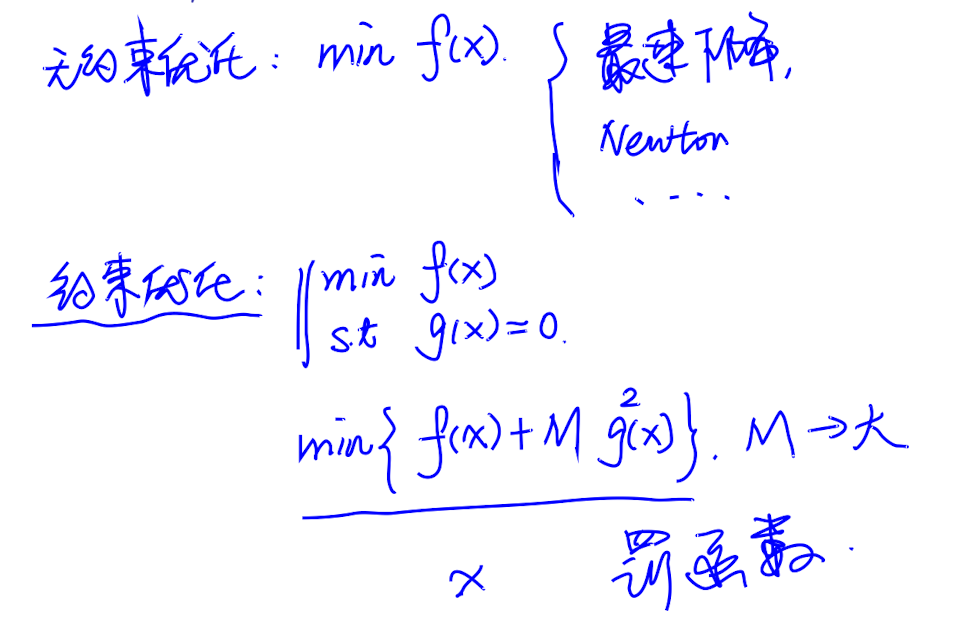 无约束优化: min f(x). { 最速下降,
Newton
....
约束优化: min f(x)
s.t g(x)=0.
min{ f(x)+M g²(x)}. M→大
x 罚函数.